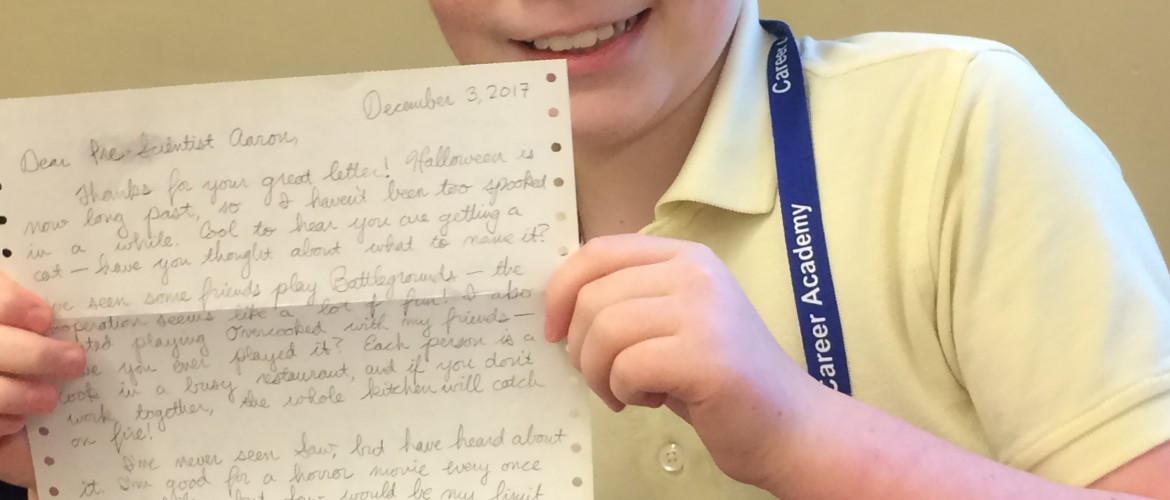 December 3, 2017
Dear Pre-Scientist Aaron,
Thanks for your great letter! Halloween is
now long past, so I haven't been too spooked
in a while. Cool to hear you are getting a
cat — have you thought about what to name it?
ve seen some friends play Battlegrounds — the
operation seems like a lot of fun! I also
ted playing Overcooked with my friends —
ve you ever played it? Each person is a
cook in a busy restaurant, and if you don't
work together, the whole kitchen will catch
on fire!
I've never seen Saw, but have heard about
it. I'm good for a horror movie every once
but Saw would be my limit
Career
Career Academy